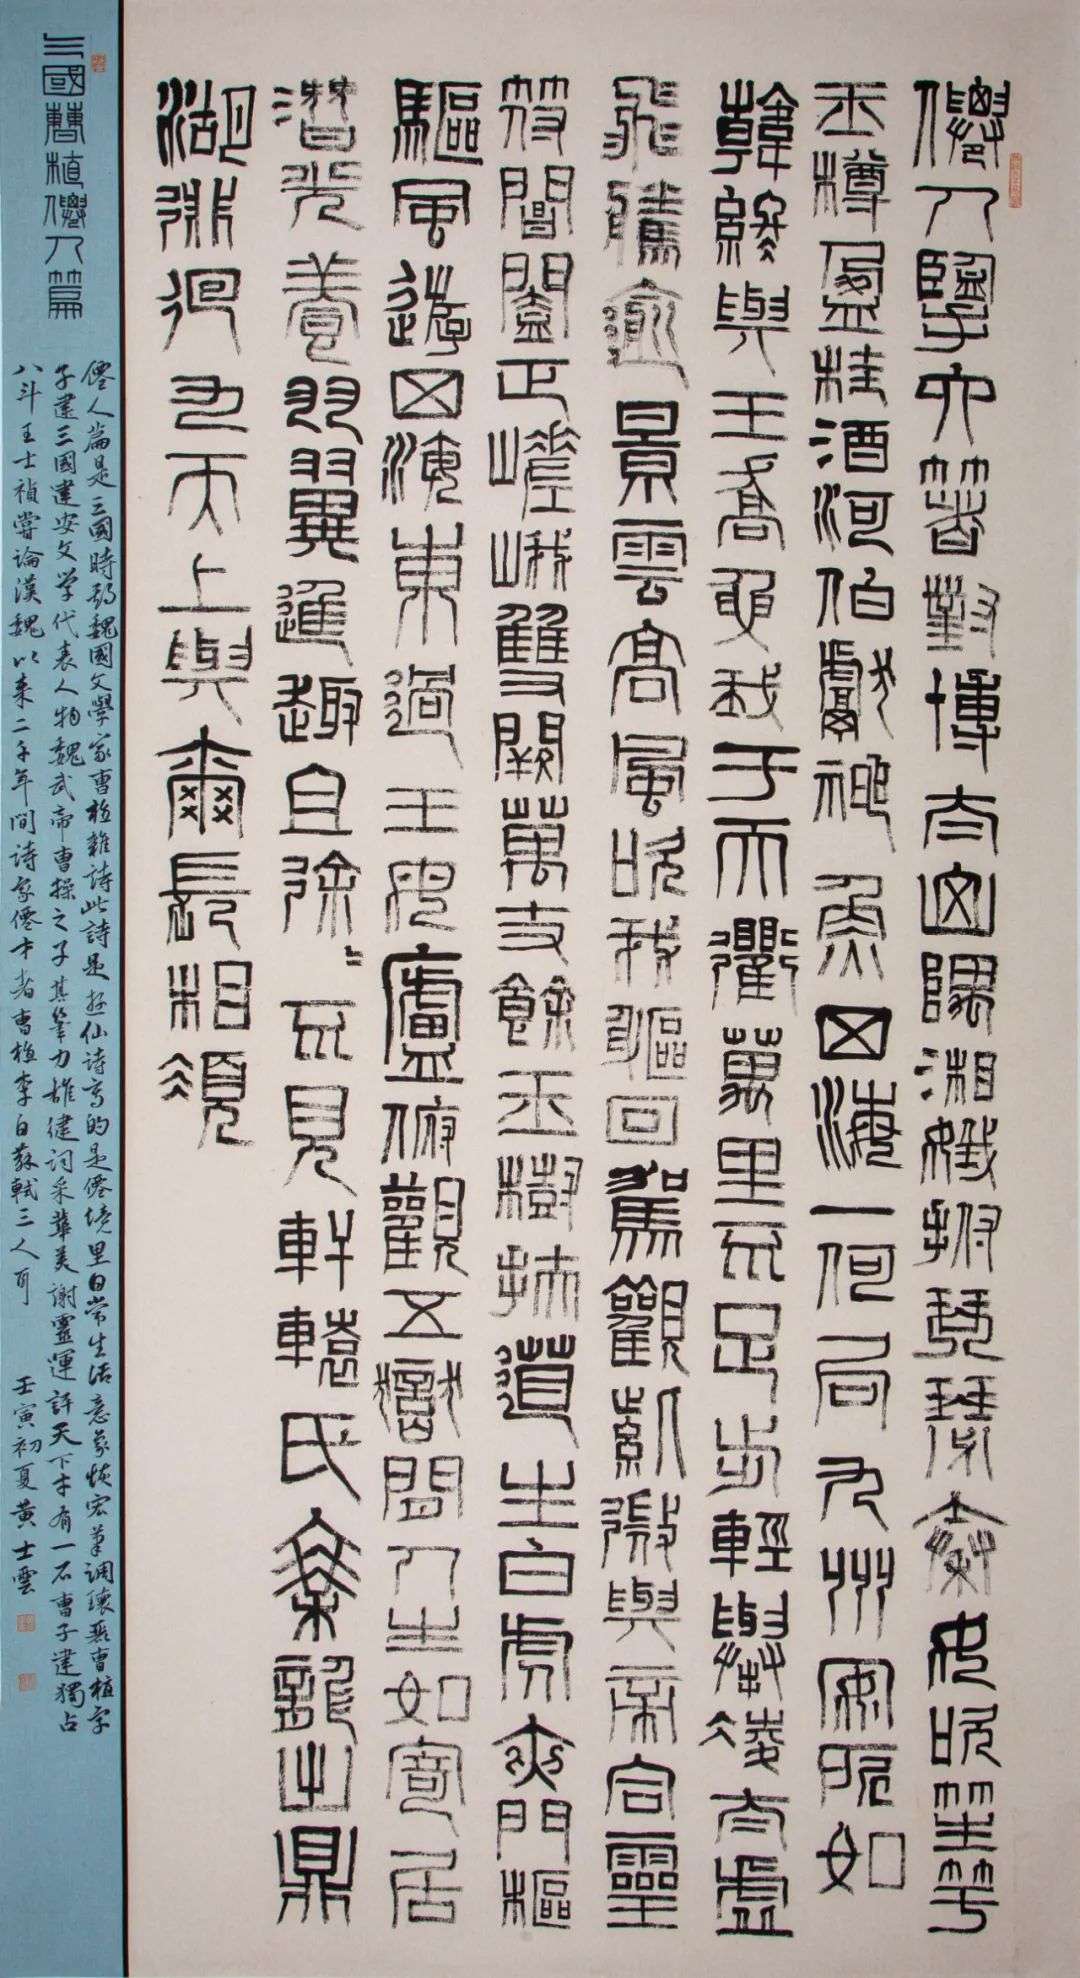 僊人攬六箸對博太山隅湘娥拊琴瑟秦女吹笙竽
玉樽盈桂酒河伯獻神魚四海一何局九州安所如
韓終與王喬要我于天衢萬里不足步輕舉凌太虛
飛騰逾景雲高風吹我軀回駕觀紫微與帝合靈
符閶闔正嵯峨雙闕萬丈餘玉樹扶道生白虎夾門樞
驅風遊四海東過王母廬俯觀五嶽間人生如寄居
潛光養羽翼進趨且徐〻不見軒轅氏乘龍出鼎
湖徘徊九天上與爾長相須
三國曹植僊人篇
僊人篇是三國時期魏國文學家曹植雜詩此詩是遊仙詩寫的是僊境里日常生活意象恢宏筆調瓌麗曹植字
子建三國建安文学代表人物魏武帝曹操之子其筆力雄健詞采華美謝靈運評天下才有一石曹子建獨占
八斗王士禎嘗論漢魏以來二千年間詩家僊才者曹植李白蘇軾三人耳 壬寅初夏黄士雲